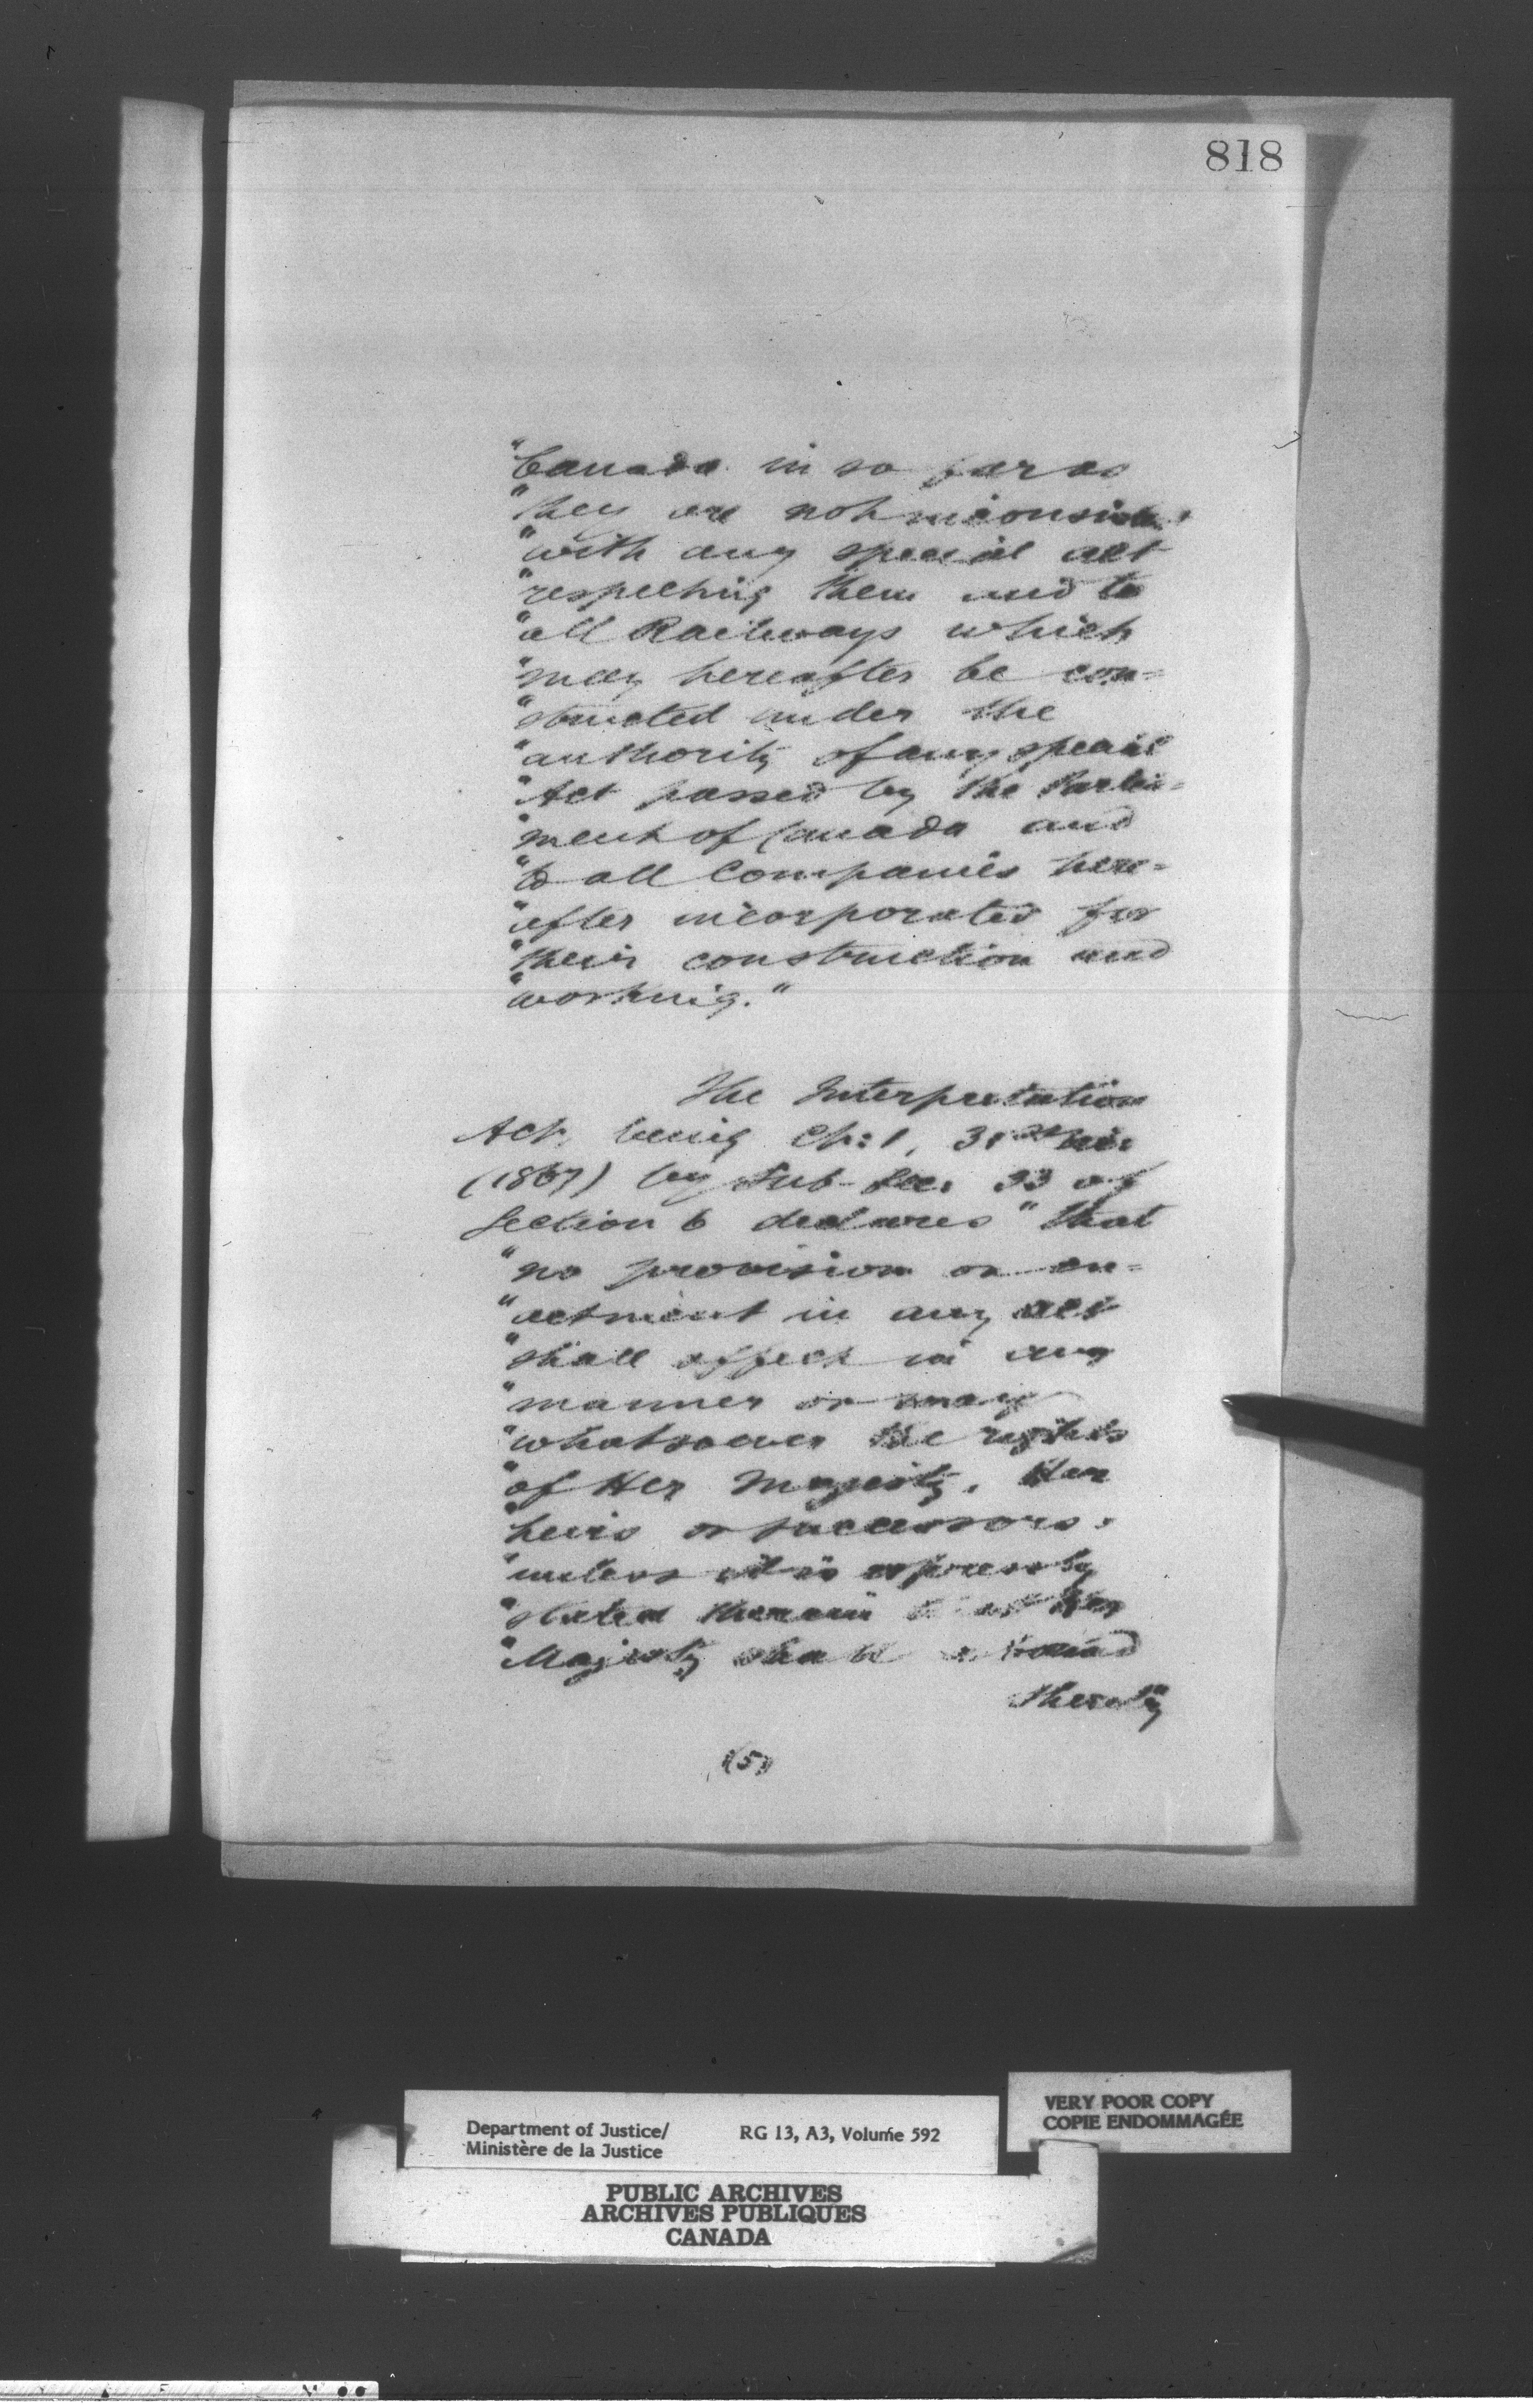 818
"Canada in so far as
"they are not inconsist
"with any special act
"respecting them and to
"all Railways which
"may hereafter be con=
"structed under the
"authority of any special
"Act passed by the Parlia=
"ment of Canada and
"to all Companies here=
"after incorporated for
"their construction and
"working."
The Interpretation
Act, being Ch: 1, 31st Vic:
(1867) by Sub-Sec. 33 of
Section 6 declares "that
"no provision or en=
"actment in any act
"shall affect in any
"manner or way
"whatsoever the rights
"of Her Majesty, Her
"heirs or successors,
"unless it is expressly
"stated therein that Her
"Majesty shall be bound
thereby
(5)
Department of Justice/
Ministère de la Justice
RG 13, A3, Volume 592
VERY POOR COPY
COPIE ENDOMMAGÉE
PUBLIC ARCHIVES
ARCHIVES PUBLIQUES
CANADA